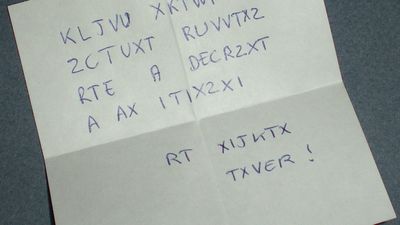 KLJVU
2CTUXT RUVVTX2
RTE A DECR2XT
A AX ITIX2XI
RT XIJKTX
TXVER !